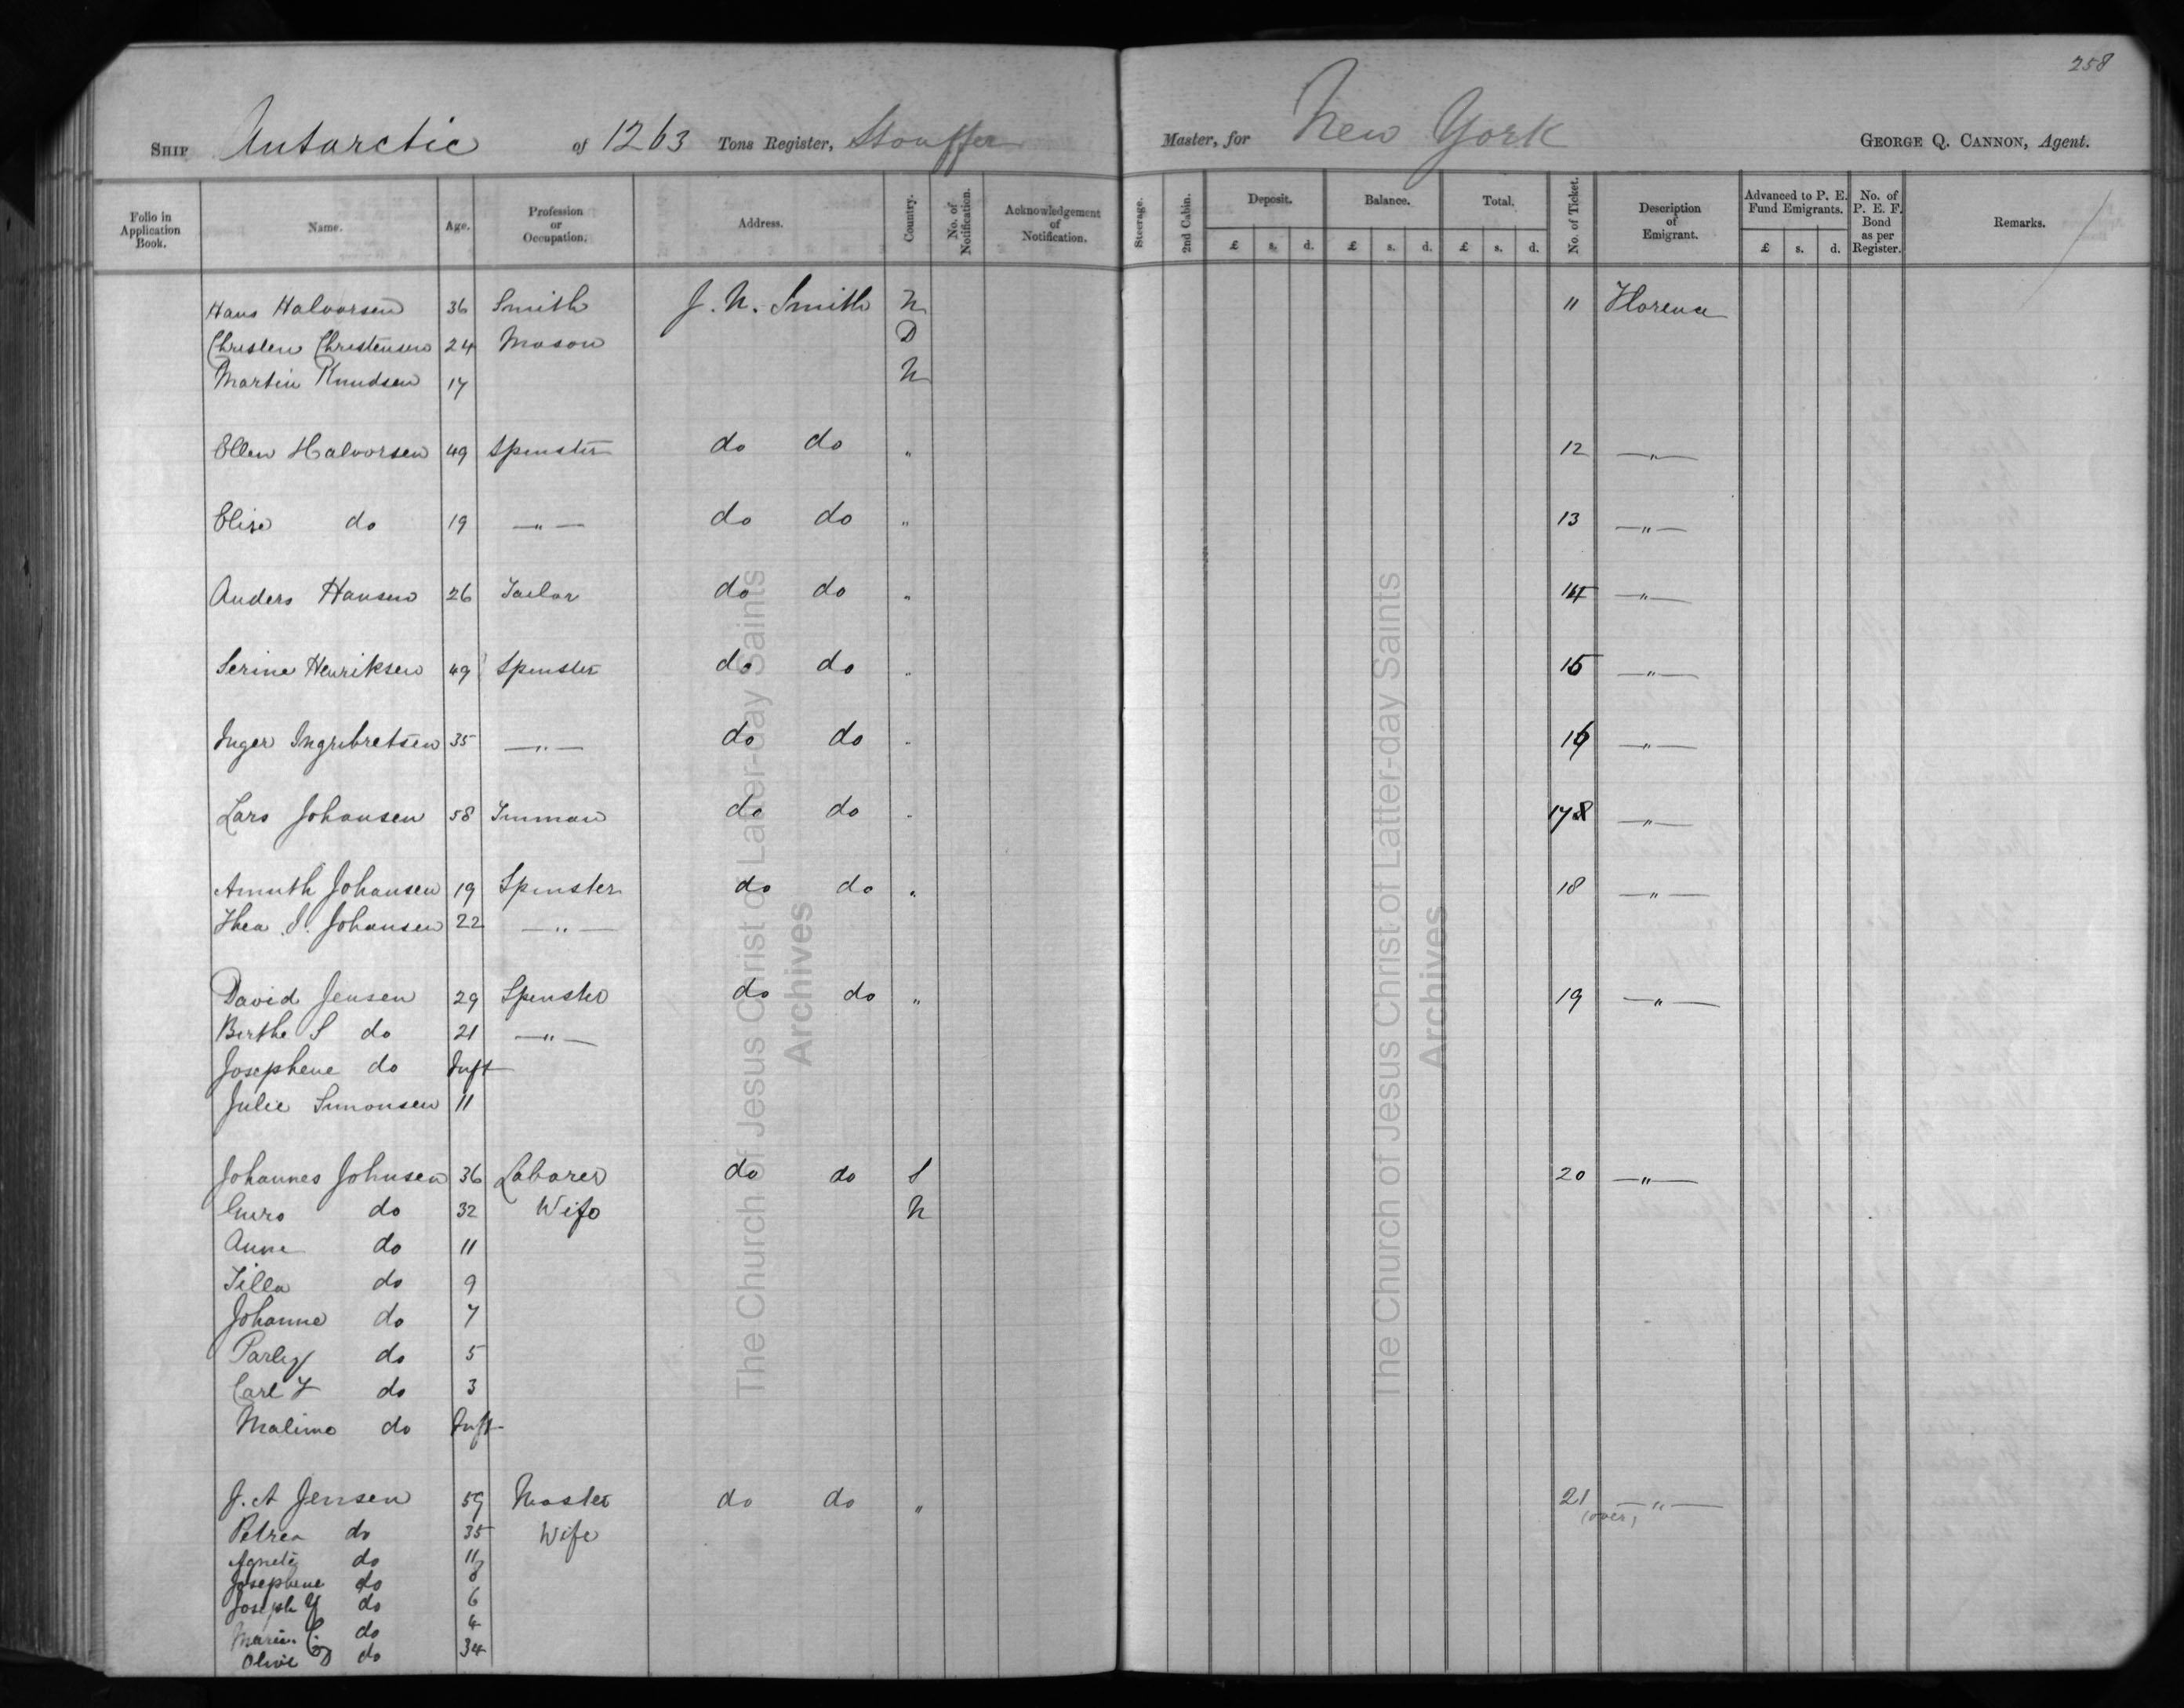 258
SHIP Antarctic of 1263 Tons Register, Stouffer Master, for New York GEORGE Q. CANNON, Agent.
Folio in Application Book. Name. Age. Profession or Occupation. Address. Country. No. of Notification. Acknowledgement of Notification. Steerage. 2nd Cabin. Deposit. £ s. d. Balance. £ s. d. Total. £ s. d. No. of Ticket. Description of Emigrant. Advanced to P. E. Fund Emigrants. £ s. d. No. of P. E. F. Bond as per Register. Remarks.
Hans Halvorsen 36 Smith J. N. Smith N 11 Florence
Christen Christensen 24 Mason D
Martin Knudsen 17 N
Ellen Halvorsen 49 Spinster do do " 12 — " —
Elise do 19 — " — do do " 13 — " —
Anders Hansen 26 Tailor do do " 14 — " —
Serine Henriksen 49 Spinster do do " 15 — " —
Inger Ingribretsen 35 — " — do do " 16 — " —
Lars Johansen 58 Inman do do " 17 — " —
Amuth Johansen 19 Spinster do do " 18 — " —
Thea J. Johansen 22 — " —
David Jensen 29 Spinster do do " 19 — " —
Birthe S do 21 — " —
Josephene do Inft
Julie Simonsen 11
Johannes Johnsen 36 Laborer do do S 20 — " —
Guro do 32 Wife N
Anne do 11
Tilla do 9
Johanne do 7
Parley do 5
Carl F do 3
Maline do Inft
J. A Jensen 59 Master do do " 21 — " —
(over)
Petrea do 35 Wife
Agnete do 11
Josephene do 8
Joseph Y do 6
Maria C. do 4
Olive D do 34
The Church of Jesus Christ of Latter-day Saints
Archives
The Church of Jesus Christ of Latter-day Saints
Archives